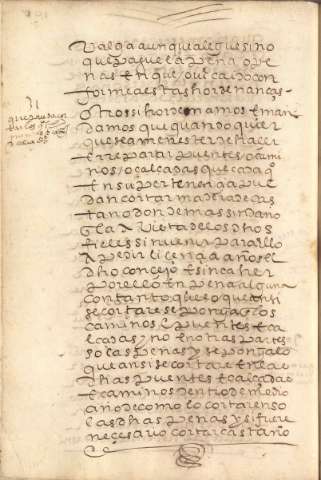 valga aunque alguesino
que pague la pena o pe
nas en que obiere caido con
forme a estas hordenanças
otrossi hordenamos e man
damos que quando quier
que sea menester de hazer
e rreparar puentes / o cami
nos / o calçadas que cada q
en su pertenençia pue
dan cortar madera de cas
taño donde mas sin daño
e la a vista de los dhos
fieles sin venir para ello
a pedir liçençia a nos el
dho conçejo e sin caher
por ello en pena alguna
con tanto que lo que ansi
se cortare se ponga en los
caminos e puentes e ca
lçadas y no en otras partes
so las penas y se ponga lo
que ansi se cortare en las
dhas puentes e calçadas
e caminos dentro de medio
año de como lo cortaren so
las dhas penas y si fuere
neçesario cortar castaño